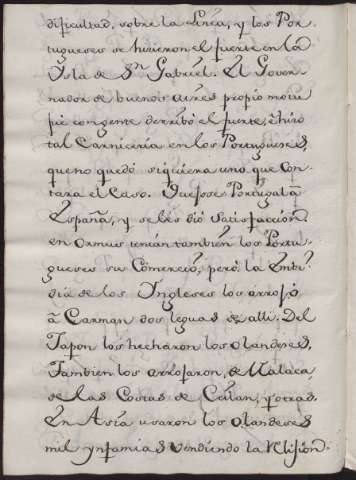 dificultad, sobre la Linea, y los Por-
tugueses se hicieron el fuerte en la
Ysla de Sn Gabriel. El Gover-
nador de buenos aires propio motu
fue con gente derribó el fuerte, è hizo
tal Carniceria en los Portugueses,
que no quedó siquiera uno que con-
tara el Caso. Quejose Portugal a
España, y se les dió satisfaccion
en Ormus tenian tambien los Portu-
gueses su Comercio, pero la Embi-
dia de los Yngleses los arrojó
à Carman dos leguas de alli. Del
Japon los hecharon los Olandeses,
Tambien los arrojaron, de Malaca,
de las Costas de Ceilan, y otras.
En Asia usaron los Olandeses
mil ynfamias vendiendo la Relision